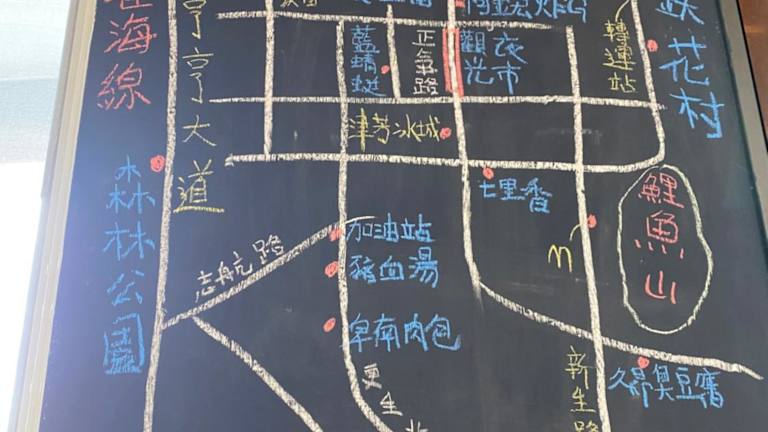 海線
亨亨大道
藍蜻蜓
正氣路
觀光夜市
轉運站
花村
津芳冰城
森林公園
七里香
鯉魚山
加油站
志航路
豬血湯
M
卑南肉包
更生北
新生路
久昂臭豆腐